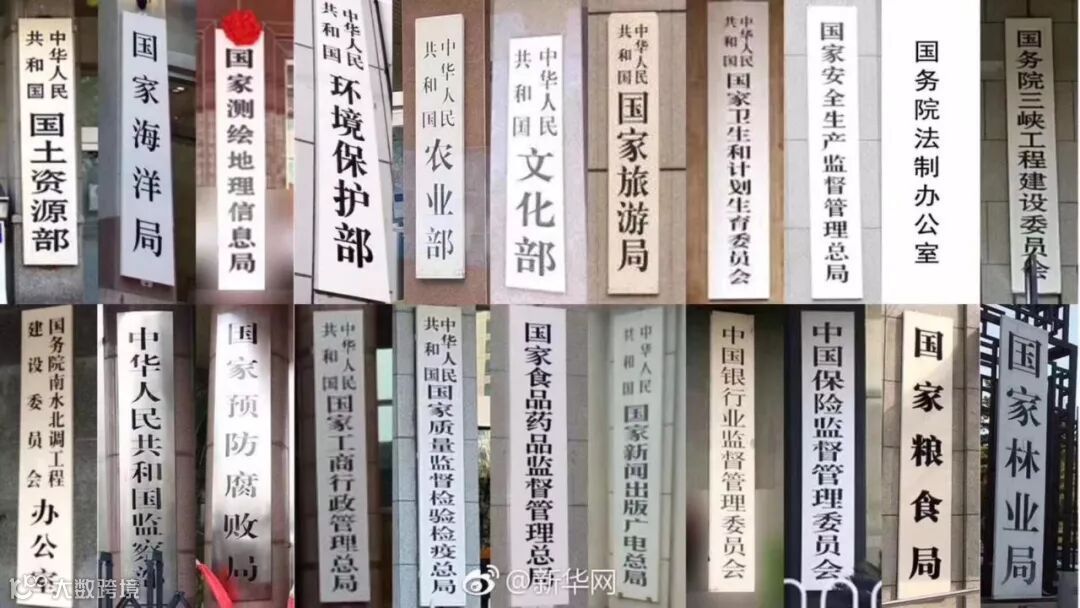 中华人民
共和国
国土资源部
国家海洋局
国家测绘地理信息局
中华人民
共和国
环境保护部
中华人民
共和国
农业部
中华人民
共和国
文化部
中华人民
共和国
国家旅游局
中华人民
共和国
国家卫生和计划生育委员会
国家安全生产监督管理总局
国务院法制办公室
国务院三峡工程建设委员会
国务院南水北调工程
建设委员会
办公室
中华人民共和国监察部
国家预防腐败局
中华人民
共和国
国家工商行政管理总局
中华人民
共和国
国家质量监督检验检疫总局
国家食品药品监督管理总局
中华人民
共和国
国家新闻出版广电总局
中国银行业监督管理委员会
中国保险监督管理委员会
国家粮食局
国家林业局
大数跨境
@新华网